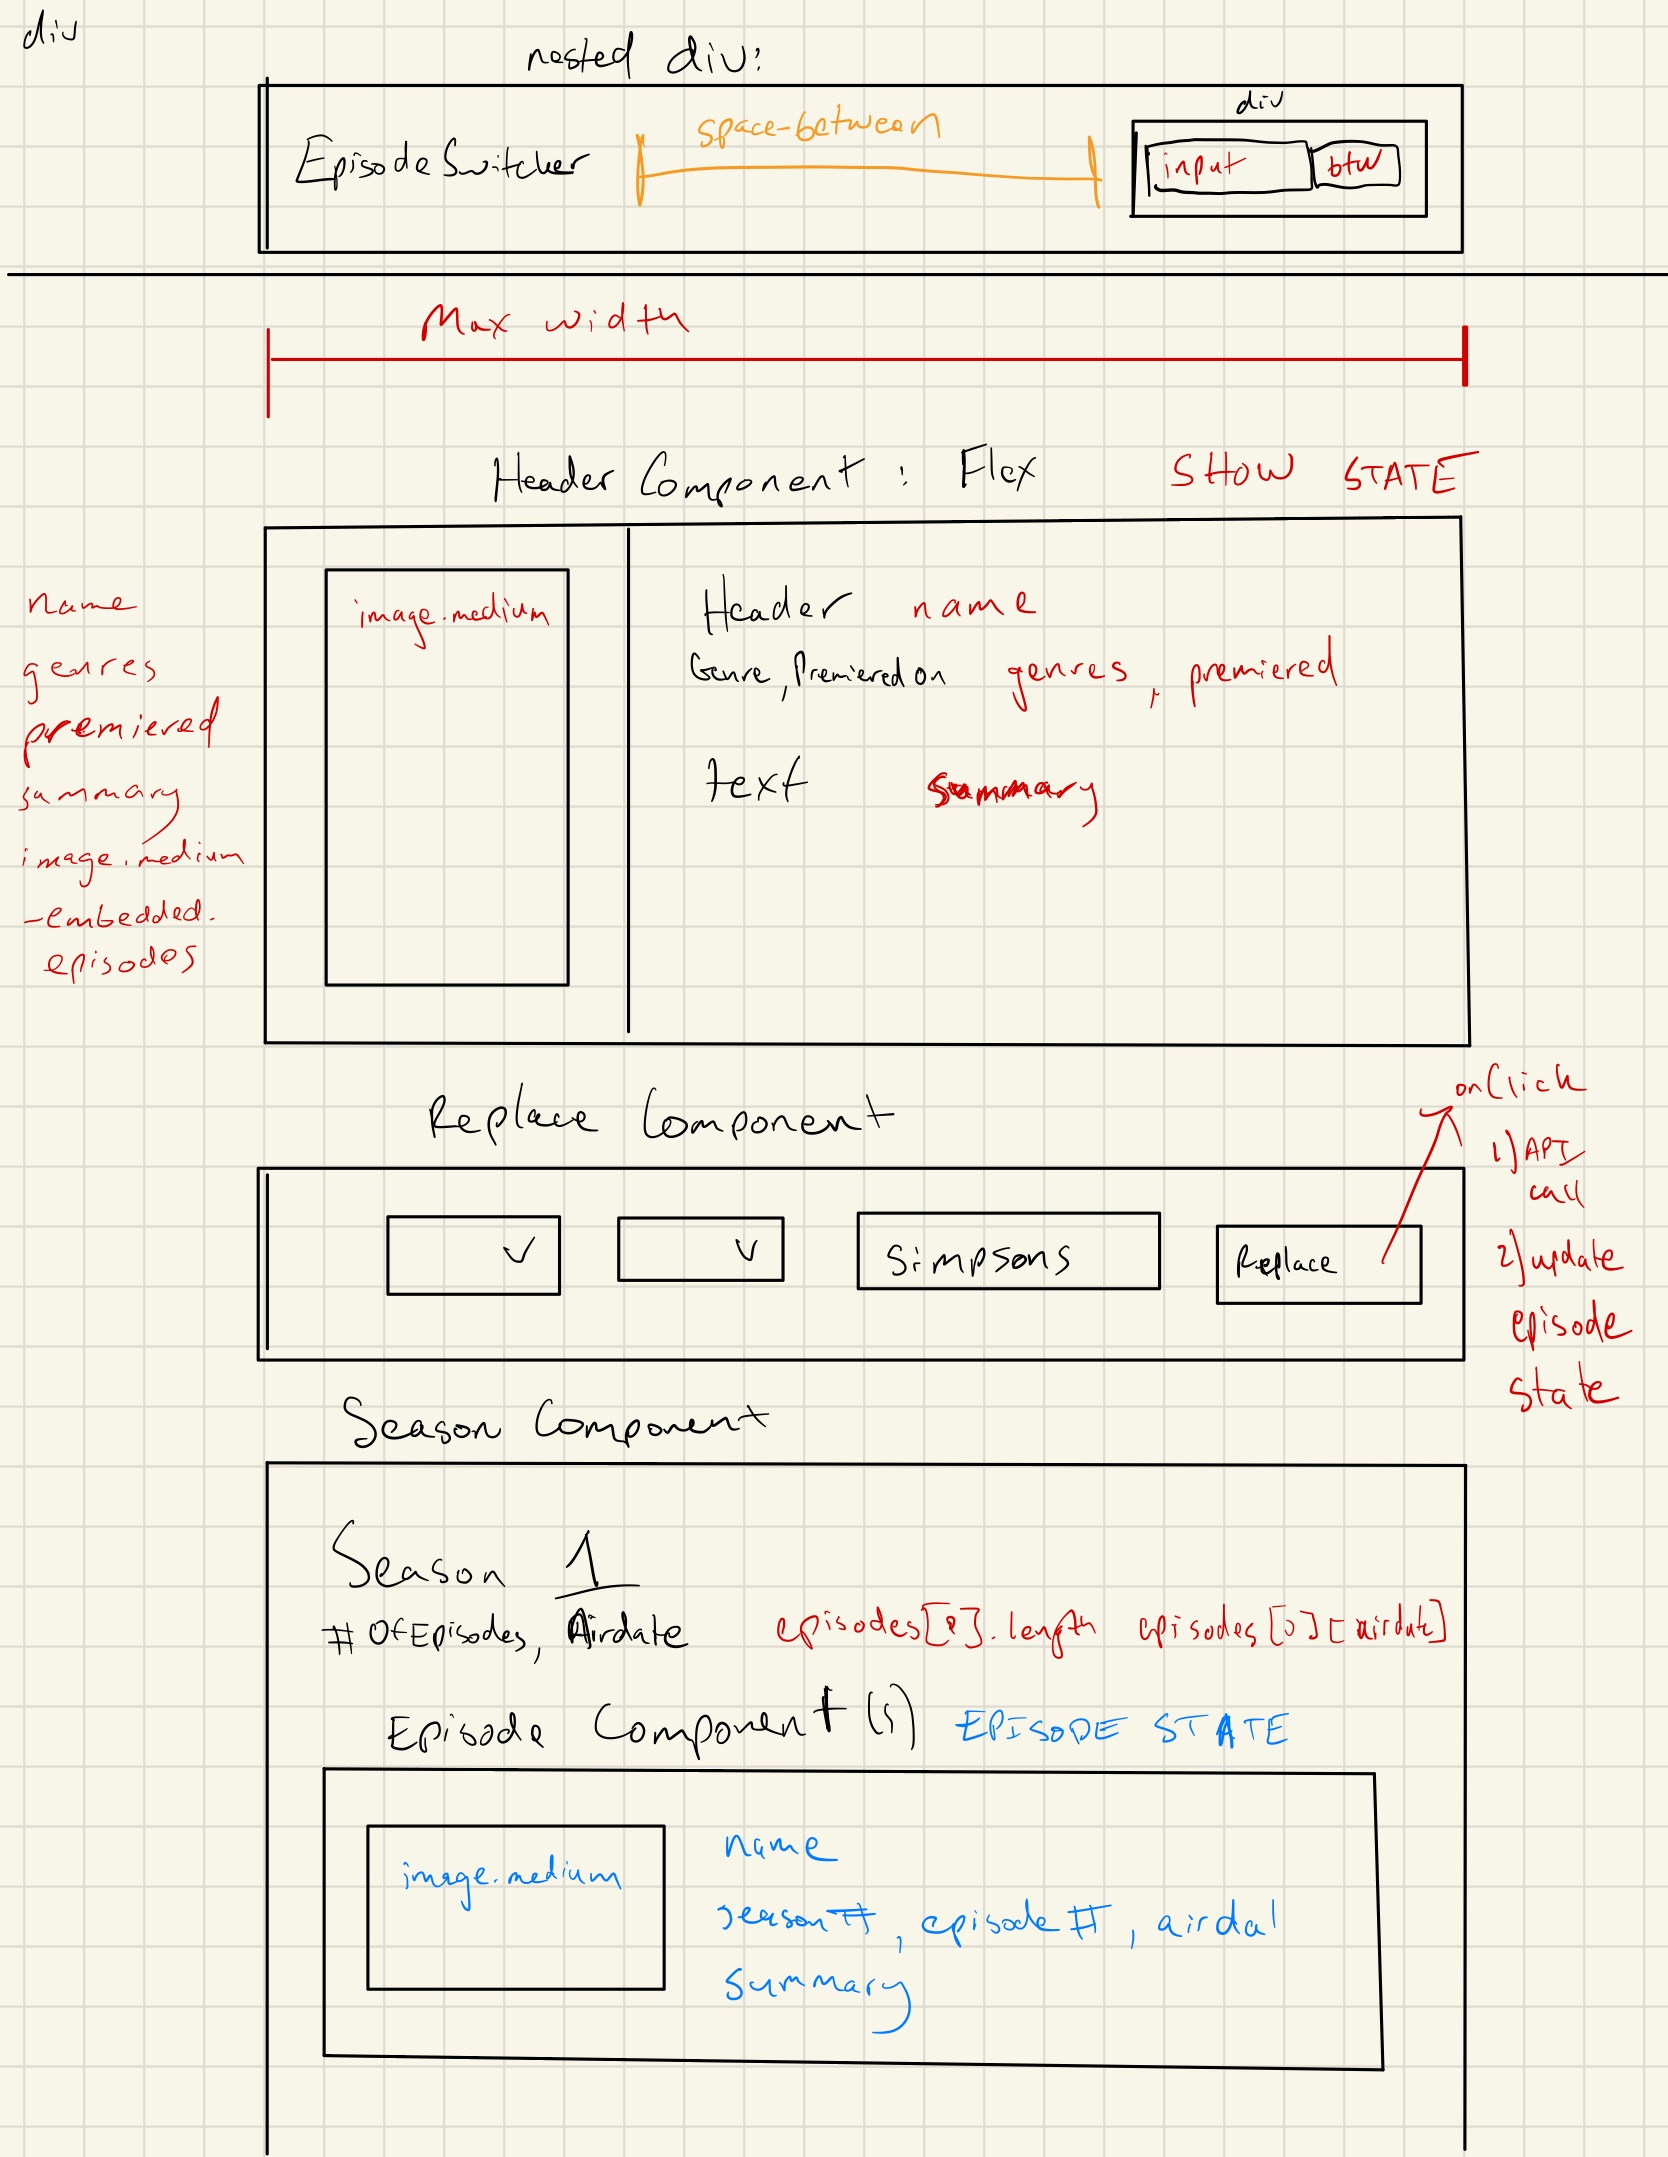 div
nested div:
div
EpisodeSwitcher
space-between
input
btn
Max width
Header Component : Flex SHOW STATE
name
genres
premiered
summary
image.medium
-embedded.
episodes
image.medium
Header name
Genre, Premiered on genres, premiered
text summary
Replace Component
onClick
1) API
call
2) update
episode
state
Simpsons
Replace
Season Component
Season 1
# OfEpisodes, Airdate episodes[ ].length episodes[0][airdate]
Episode Component(s) EPISODE STATE
image.medium
name
season#, episode#, airdat
summary